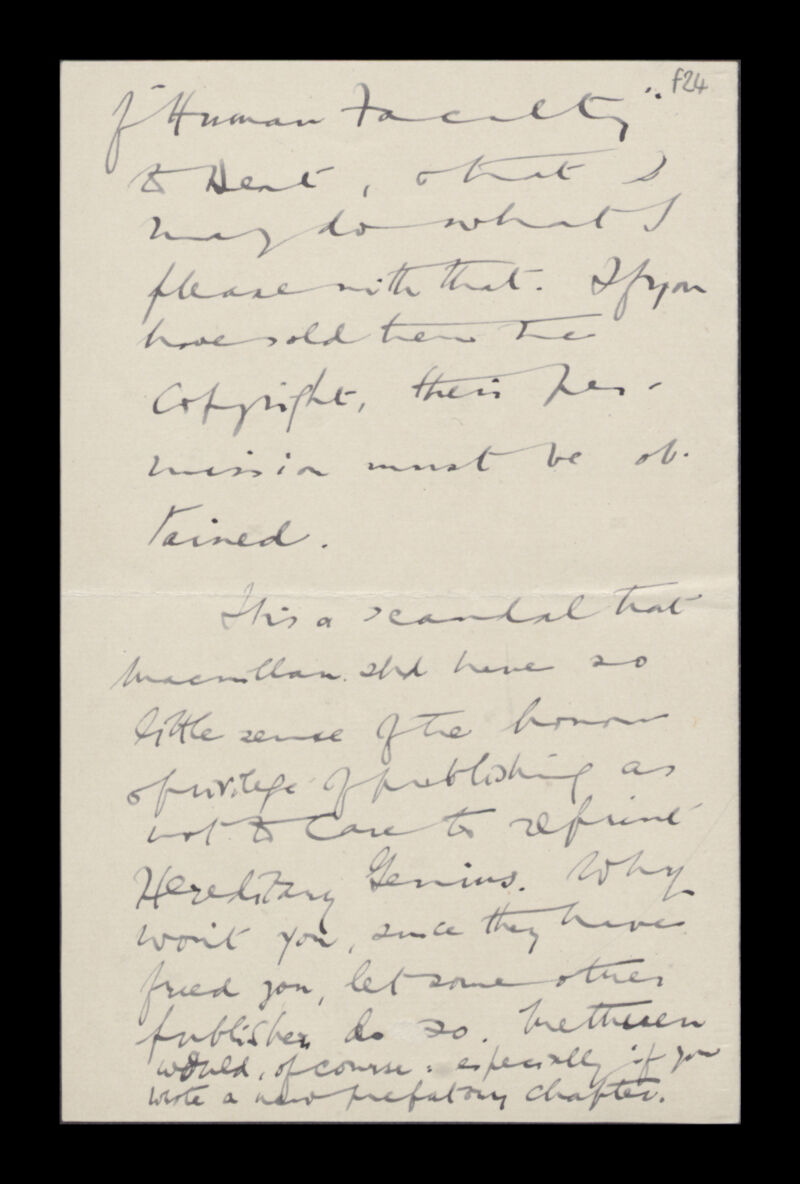 f24
of "Human Faculty"
to Dent, & that I
may do what I
please with that. If you
have sold them the
Copyright, their per-
mission must be ob-
tained.
It is a scandal that
Macmillan shd have so
little sense of the honour
& privilege of publishing as
not to care to reprint
Hereditary Genius. Why
won't you, since they have
freed you, let some other
publisher do so. Methuen
would, of course: especially if you
wrote a new prefatory chapter.